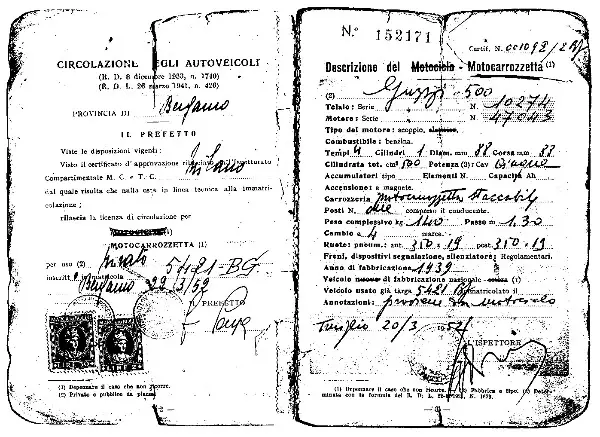 CIRCOLAZIONE DEGLI AUTOVEICOLI
(R. D. 8 dicembre 1933, n. 1740)
(R. D. L. 26 marzo 1941, n. 426)
PROVINCIA DI Bergamo
IL PREFETTO
Viste le disposizioni vigenti;
Visto il certificato d'approvazione dell'Ispettorato
Milano
Compartimentale M. C. e T. C.
dal quale risulta che nulla osta in linea tecnica alla immatri-
colazione;
rilascia la licenza di circolazione per
MOTOCARROZZETTA (1)
per uso (2) privato
5481-BG
matricola
Bergamo 29/3/52
IL PREFETTO
(1) Depennare il caso che non ricorre.
(2) Privato o pubblico da piazza.
N.° 152171
Certif. N.
Descrizione del Motociclo - Motocarrozzetta (1)
(2) Guzzi-500
Telaio: Serie N. 10274
Motore: Serie N. 47043
Tipo del motore: scoppio,
Combustibile: benzina.
Tempi 4 Cilindri 1 Diam. mm. 88 Corsa mm. 82
Cilindrata tot. cm³ 500 Potenza (3): Cav.
Accumulatori tipo Elementi N. Capacità Ah
Accensione: a magnete.
Carrozzeria motocarrozzetta staccabile
Posti N. due compreso il conducente.
Peso complessivo kg. Passo m. 1.30
Cambio a 4 marce.
Ruote: pneum.: ant. 350 x 19 post. 350 x 19
Freni, dispositivi segnalazione, silenziatore: Regolamentari.
Anno di fabbricazione 1939
Veicolo nuovo di fabbricazione nazionale - estera (1)
Veicolo usato già targa 5481 BG immatricolato il
Annotazioni: proviene da motociclo
Treviglio 20/3 1952
L'ISPETTORE
(1) Depennare il caso che non ricorre. (2) Fabbrica e tipo. (3) Deter-
minata con la formula del R. D. L.